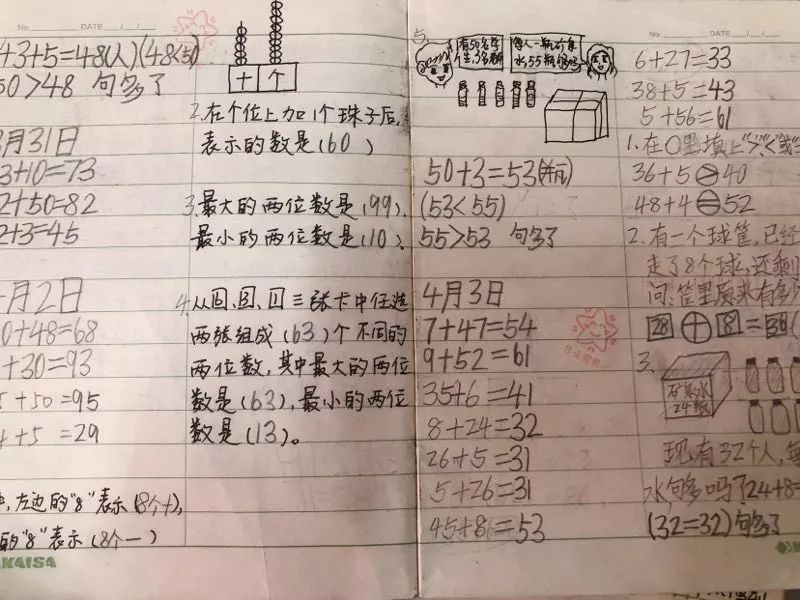 43+5=48(人)(48<50)
50>48 句多了
3月31日
3+10=73
2+50=82
2+3=45
月2日
0+48=68
+30=93
5+50=95
4+5=29
左边的"8"表示(8个十),
的"8"表示(8个一)
KAISA
No. DATE / /
十 个
2.在个位上加1个珠子后,
表示的数是(60)
3.最大的两位数是(99),
最小的两位数是(10).
4.从 三张卡中任选
两张组成(63)个不同的
两位数,其中最大的两位
数是(63),最小的两位
数是(13)。
No. DATE / /
5.
有50名学
生,3名老师
每人一瓶矿泉
水,55瓶够吗
50+3=53(瓶)
(53<55)
55>53 句多了
4月3日
7+47=54
9+52=61
35+6=41
8+24=32
26+5=31
5+26=31
45+8=53
6+27=33
38+5=43
5+56=61
1.在○里填上">""<"或"
36+5>40
48+4=52
2.有一个球筐,已经
走了8个球,还剩
问:筐里原来有多
28+8=36
3.
矿泉水
24瓶
现有32个人,每
水,句多吗?24+8=
(32=32)句多了